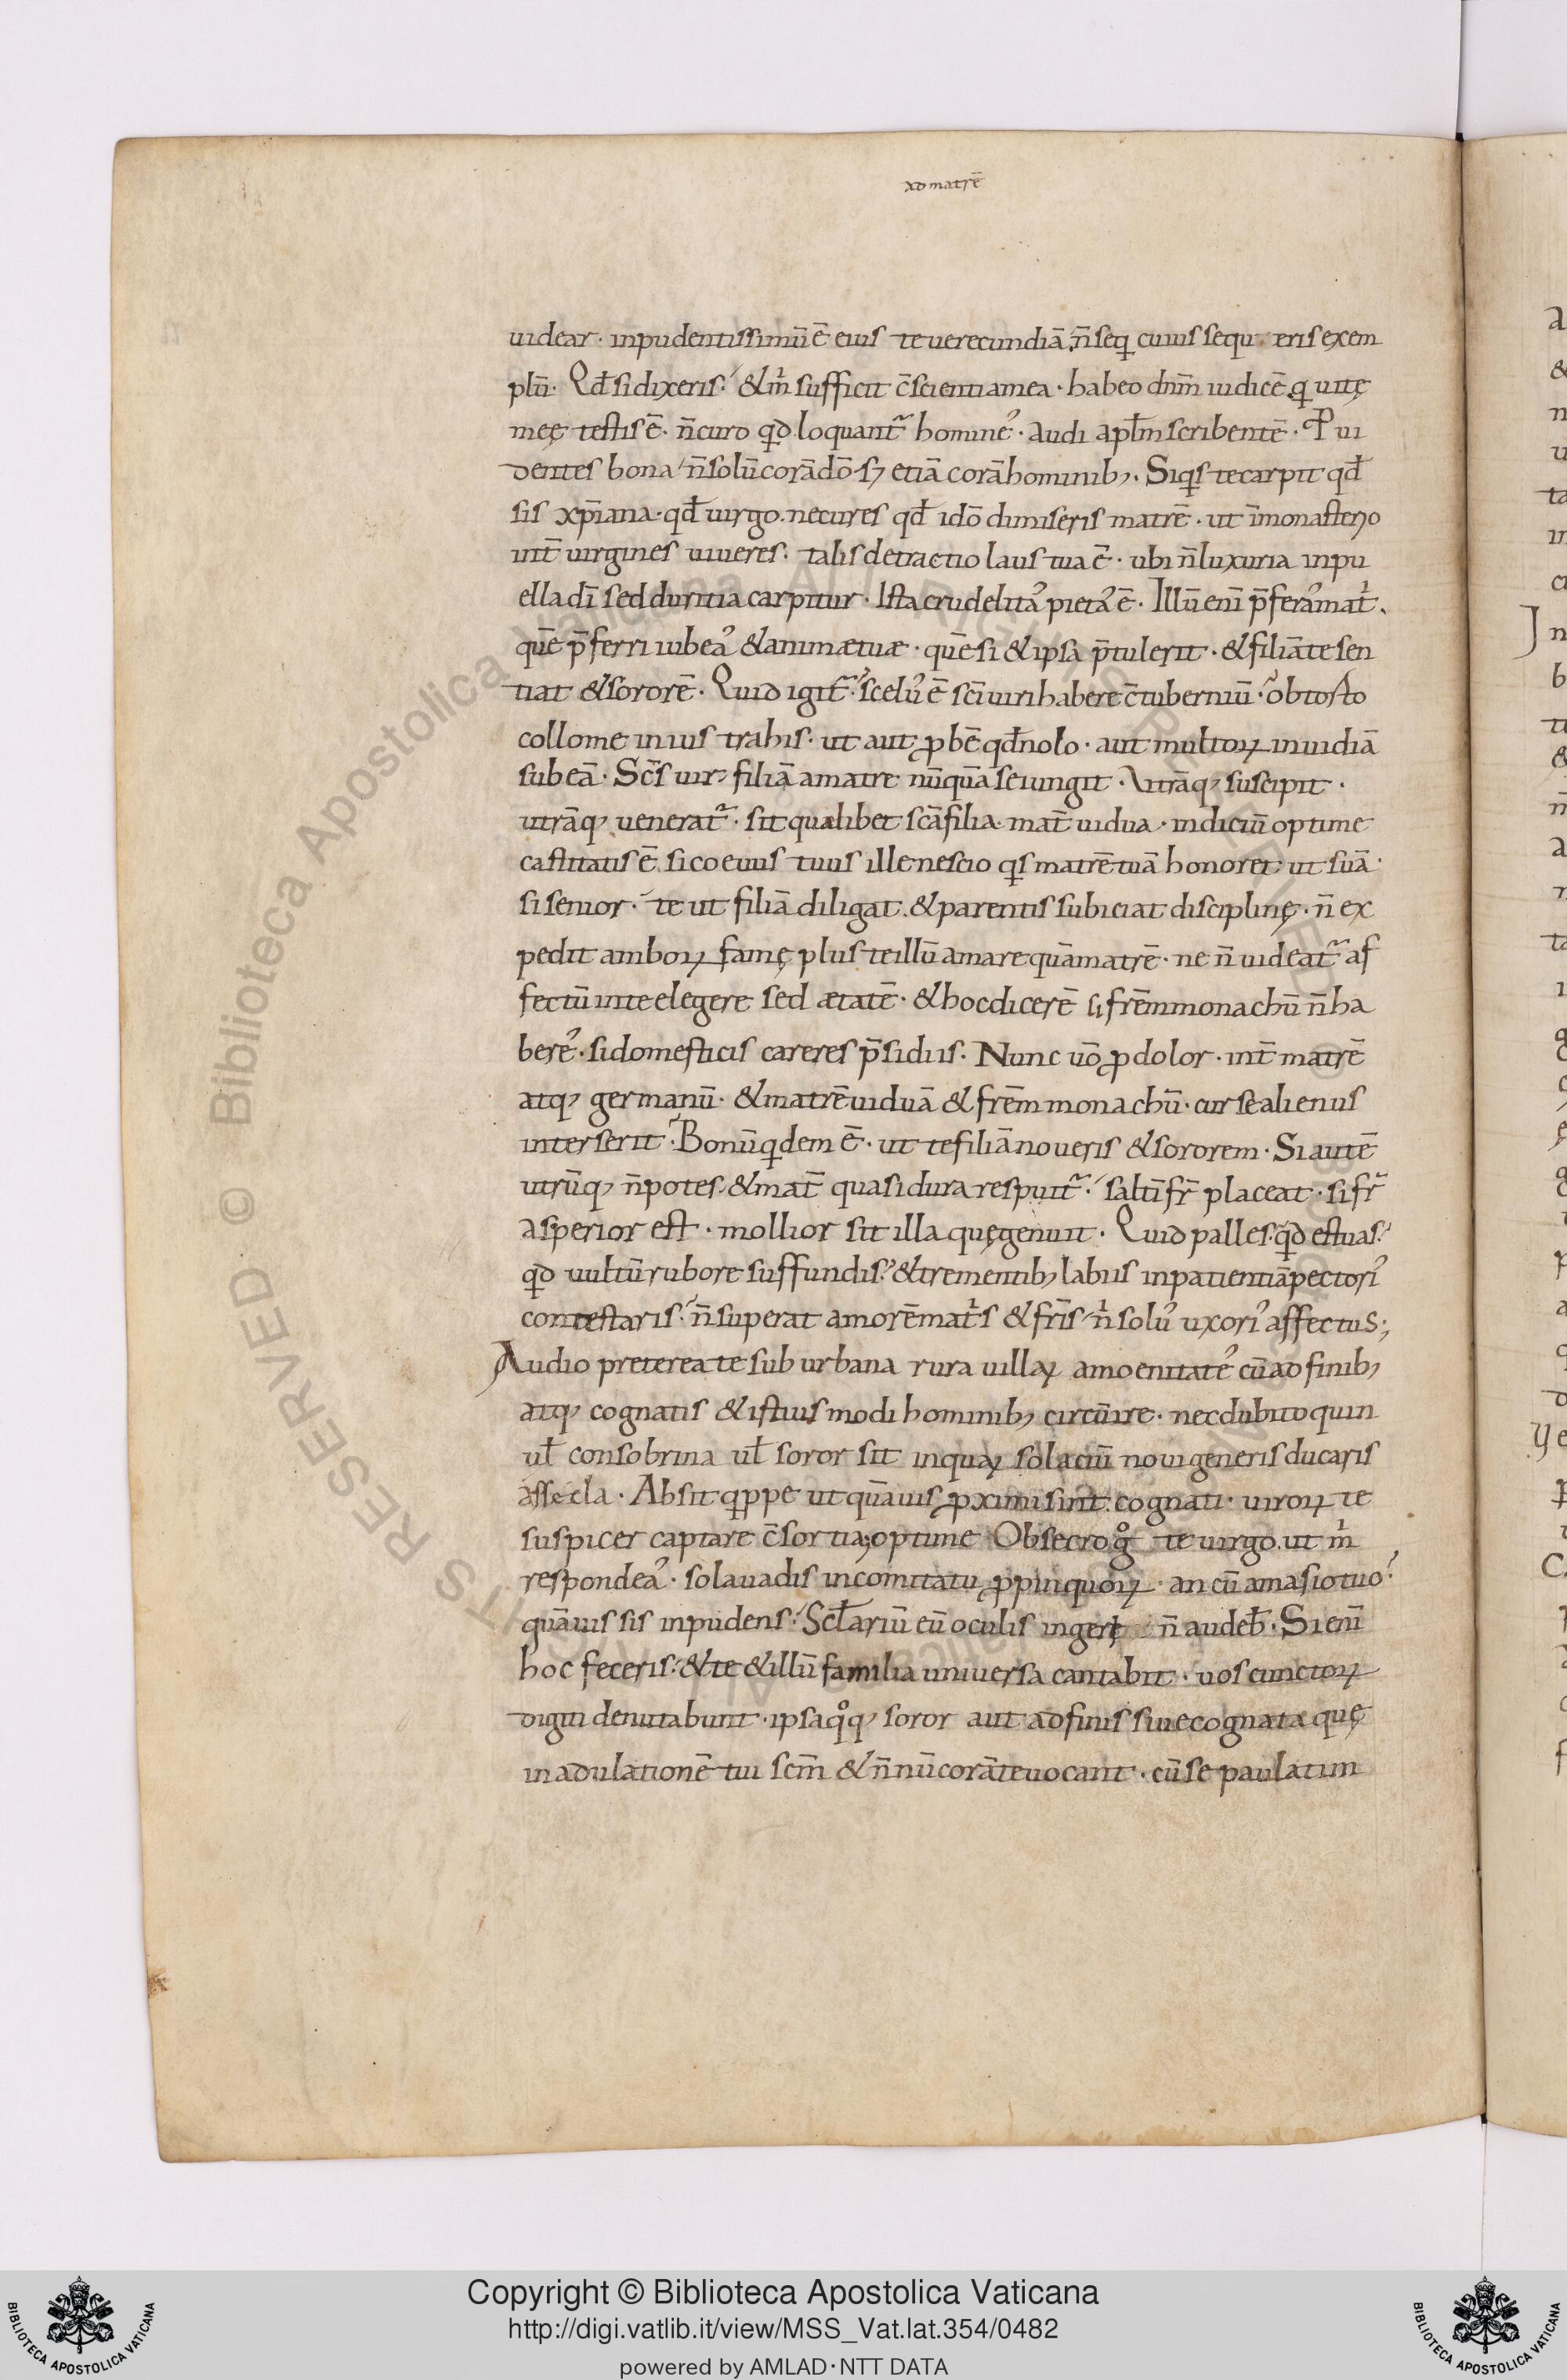 ad matrē
uidear · inpudentissimū ē eius te uerecundiā n̄ seq̨ cuius sequeris exem
plū · Qđ si dixeris · & m̄ sufficit c̄scientia mea · habeo dn̄m iudicē q̨ uitę
meę testis ē · n̄ curo qd loquant̄ homine᾿ · audi apl̄m scribentē · P̱ui
dentes bona n̄ solū corā dō · s; etiā corā hominib; · Si q̨s te carpit qđ
sis xp̄iana · qđ uirgo · ne cures qđ idō dimiseris matrē · ut ī monasterio
int̄ uirgines uiueres · talis detractio laus tua ē · ubi n̄ luxuria in pu
ella dī sed duritia carpitur · Ista crudelita᾿ pieta᾿ ē · Illū enī p̄fera᾿ mat̄ ·
quē p̄ferri iubea᾿ & animæ tuæ · quē si & ipsa p̄tulerit · & filiā te sen
tiat & sororē · Quid igit̄ · scelu᾿ ē sc̄i uiri habere c̄tuberniū · obtosto
collo me in ius trahis · ut aut ꝓbē qđ nolo · aut multoꝝ inuidiā
subeā · Sc̄s uir filiā a matre nūquā seiungit · Vtrāq; suscipit ·
utrāq; uenerat̄ · sit qualibet sc̄a filia · mat̄ uidua · indiciū optime
castitatis ē · si coeuus tuus ille nescio q̨s matrē tuā honoret ut suā ·
si senior · te ut filiā diligat · & parentis subiciat disciplinę · n̄ ex
pedit amboꝝ famę plus te illū amare quā matrē · ne n̄ uideat̄ af
fectū in te elegere sed ætatē · & hoc dicerē si fr̄em monachū n̄ ha
bere᾿ · si domesticis careres p̄sidiis · Nunc uō ꝓ dolor · int̄ matrē
atq; germanū · & matrē uiduā & fr̄em monachū · cur se alienus
interserit · Bonū q̨dem ē · ut te filiā noueris & sororem · Si autē
utrūq; n̄ potes · & mat̄ quasi dura respuit̄ · saltī fr̄ placeat · si fr̄
asperior est · mollior sit illa quę genuit · Quid palles · qd estuas ·
qd uultū rubore suffundis · & trementib; labiis inpatientiā pectori᾿
contestaris · n̄ superat amorē mat̄s & fr̄is n̄ solu᾿ uxori᾿ affectus;
Audio preterea te suburbana rura uillaꝝ amoenitate᾿ cū adfinib;
atq; cognatis & istius modi hominib; circūire · nec dubito quin
ul̄ consobrina ul̄ soror sit in quaꝝ solaciū noui generis ducaris
assecla · Absit q̨ppe ut quāuis ꝓximi sint cognati · uiroꝝ te
suspicer captare c̄sortia; optime Obsecro g̊ te uirgo · ut m̄
respondea᾿ · sola uadis in comitatu ꝓpinquoꝝ · an cū amasio tuo ·
quāuis sis inpudens · Scl̄ariū eū oculis ingerere n̄ audeb̄ · Si enī
hoc feceris · & te & illū familia uniuersa cantabit · uos cunctoꝝ
digiti denutabunt · ipsa qq̊; soror aut adfinis siue cognata quę
in adulationē tui sc̄m & n̄nū corā te uocant · cū se paulatim
Copyright © Biblioteca Apostolica Vaticana
http://digi.vatlib.it/view/MSS_Vat.lat.354/0482
powered by AMLAD·NTT DATA